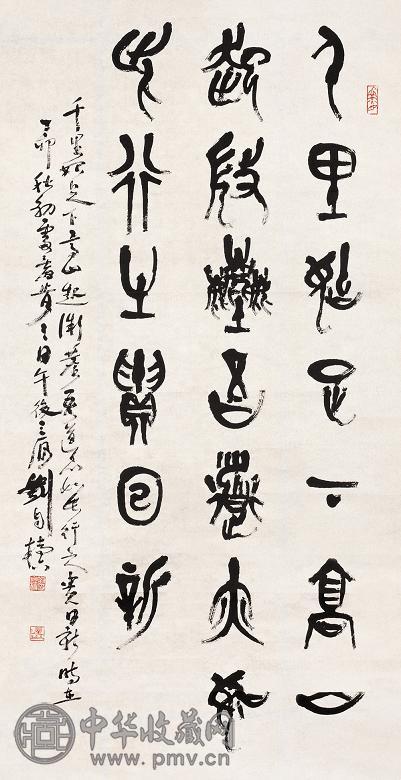 千里始足下高山
起微塵吾道亦如
此行之貴日新
千里始足下高山起微塵吾道亦如此行之貴日新時在
丁卯秋初日午後劉自櫝
中华收藏网
www.pmv.cn